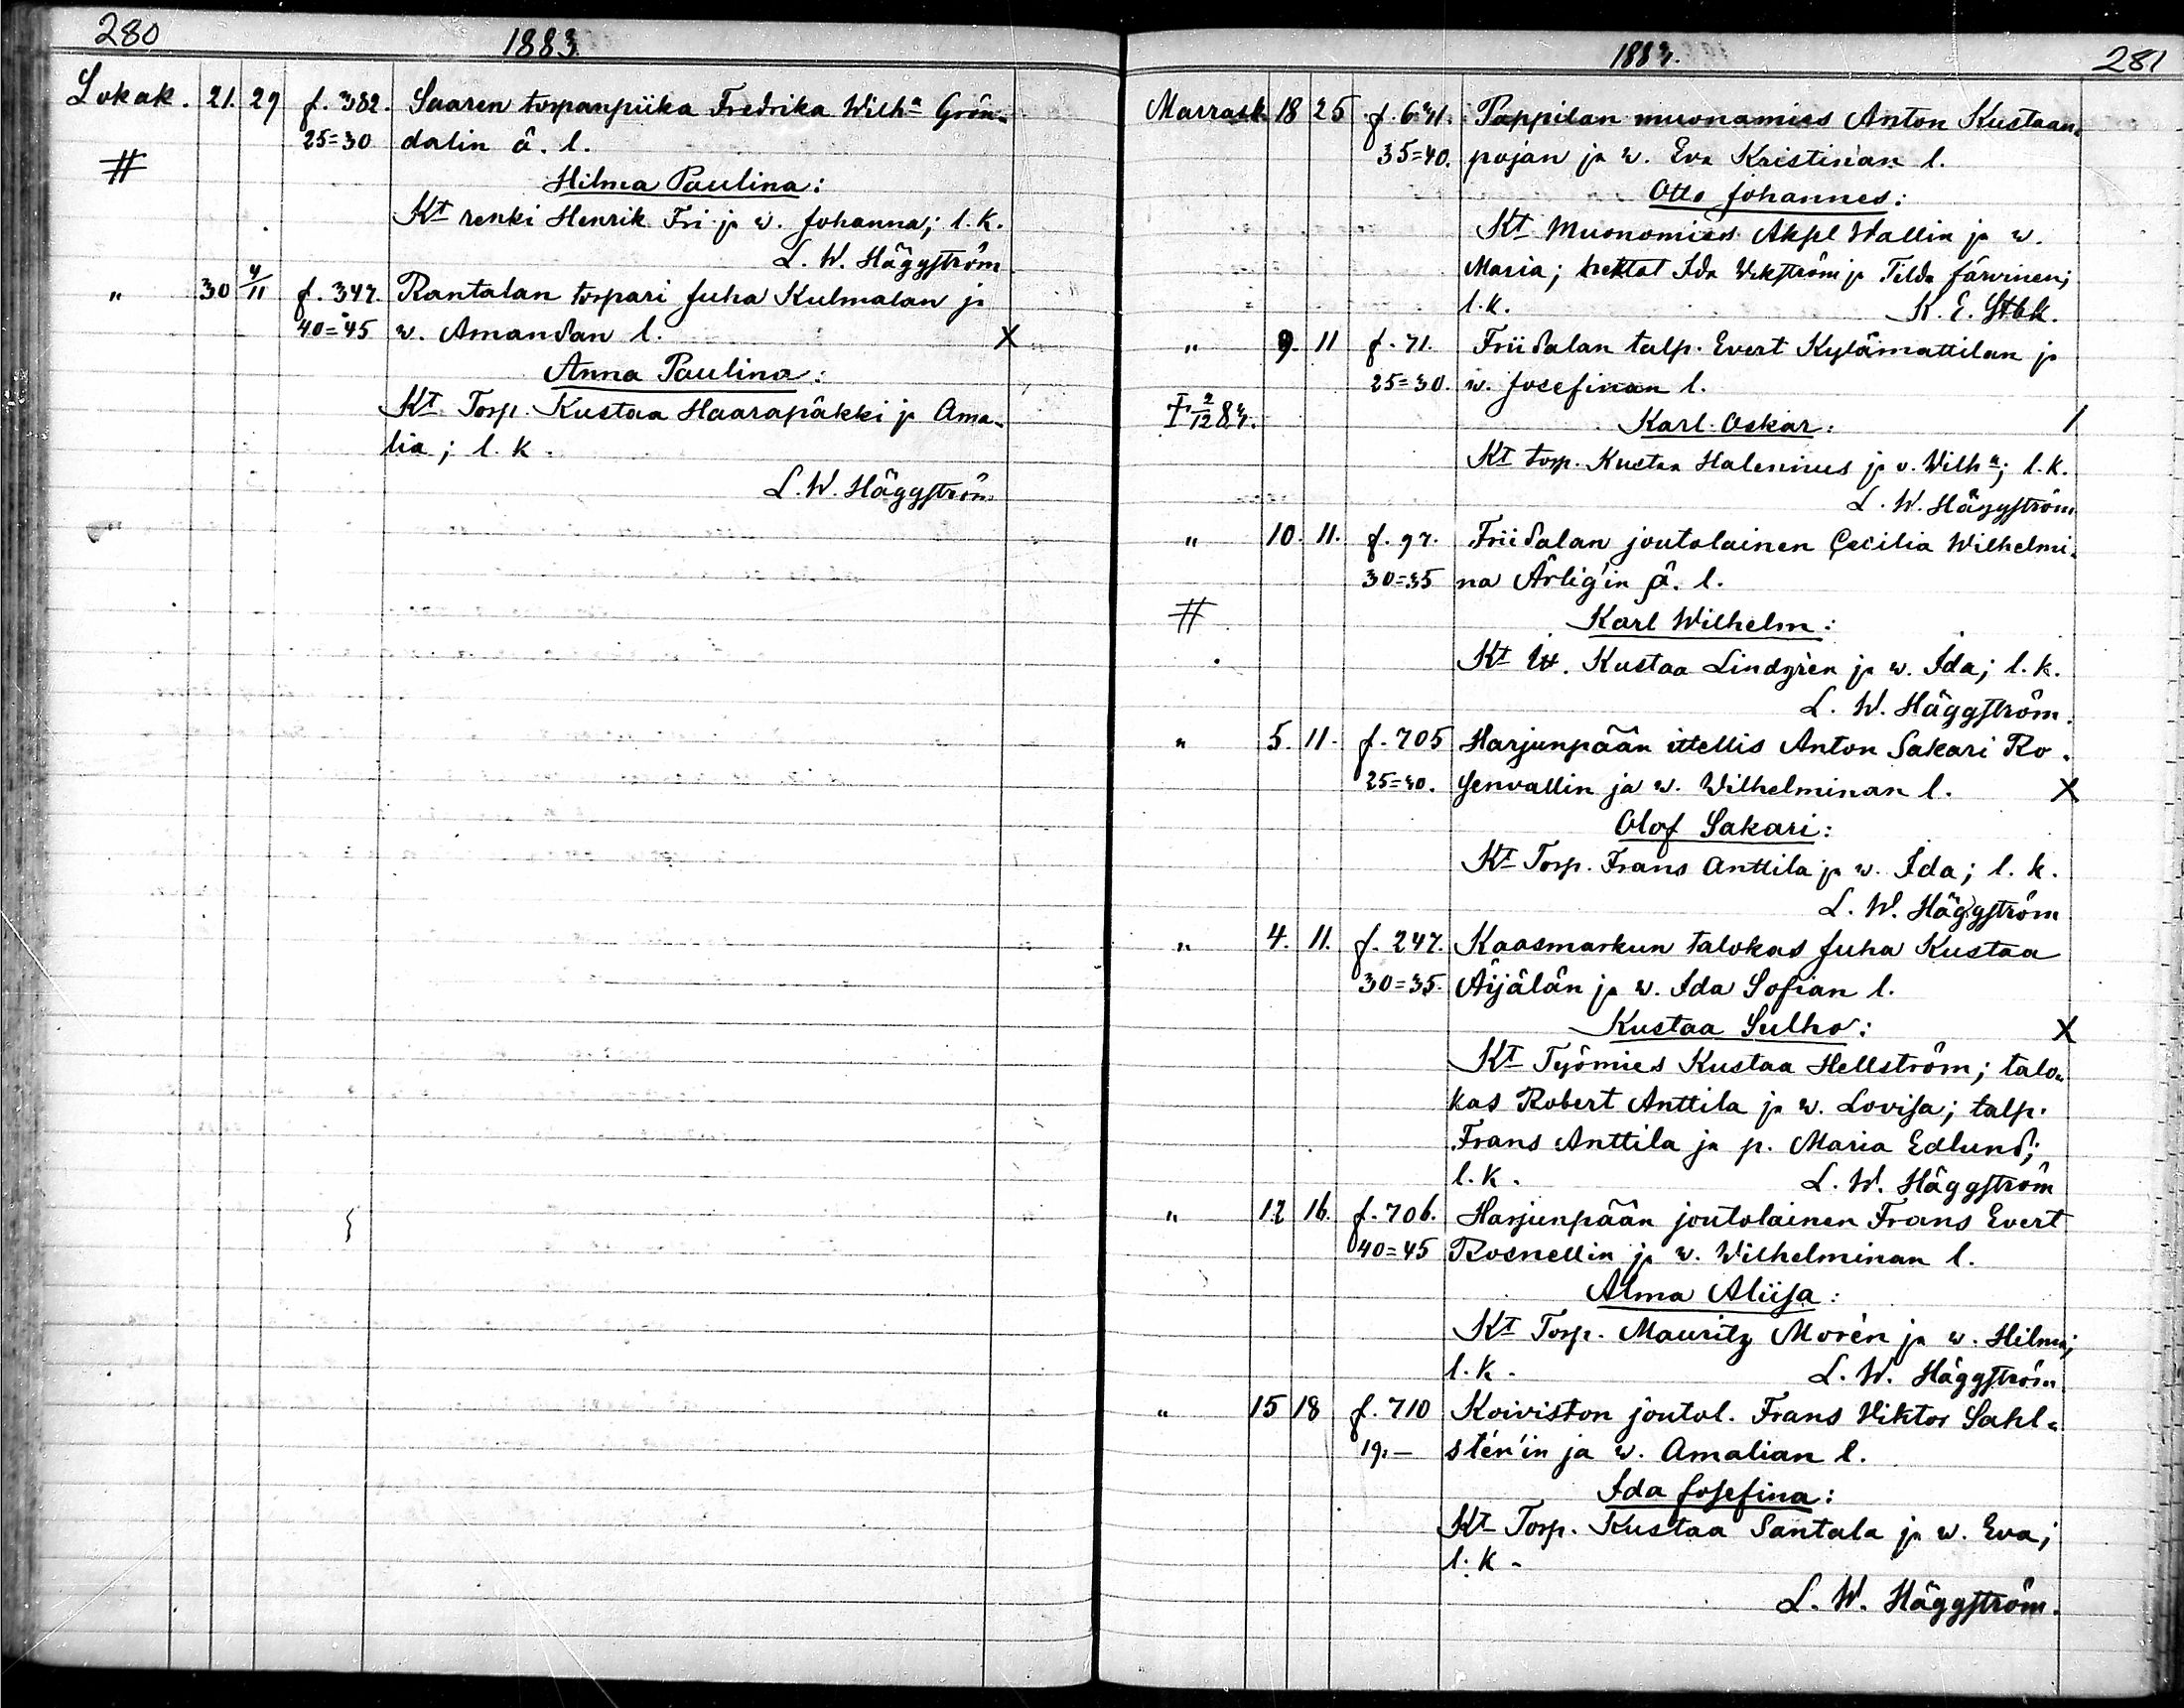 280
1883.
Lokak. 21. 29 f. 382. Saaren torpanpiika Fredrika Wilhª Grön-
25=30 dalin ä. l.
#
Hilma Paulina:
Kt renki Henrik Fri ja w. Johanna; l. k.
L. W. Häggström
" 30 4/11 f. 347. Rantalan torpari Juha Kulmalan ja
40=45 w. Amandan l. X
Anna Paulina:
Kt Torp. Kustaa Haarapäkki ja Ama-
lia; l. k.
L. W. Häggström
1883.
281
Marrask. 18 25 Pappilan muonamies Anton Kustaan-
35=40. pojan ja w. Eva Kristinan l.
Otto Johannes:
Kt Muonamies Wallin ja w.
Maria; Ida ja Tilda Järvinen;
l. k. K. E.
" 9. 11 f. 71. Friidalan talp. Evert Kylämattilan ja
25=30. w. Josefinan l.
Karl Oskar: /
Kt torp. Kustaa Halenius ja v. Wilhª; l. k.
L. W. Häggström
" 10. 11. f. 97. Friidalan joutolainen Cecilia Wilhelmi-
30=35 na Ärlig'in ä. l.
#
Karl Wilhelm:
Kt Itt. Kustaa Lindgrèn ja w. Ida; l. k.
L. W. Häggström.
" 5. 11. f. 705 Harjunpään ittellis Anton Sakari Ro-
25=30. senvallin ja w. Wilhelminan l. X
Olof Sakari:
Kt Torp. Frans Anttila ja w. Ida; l. k.
L. W. Häggström
" 4. 11. f. 247. Kaasmarkun talokas Juha Kustaa
30=35. Äijälän ja w. Ida Sofian l.
Kustaa Sulho: X
Kt Työmies Kustaa Hellström; talo-
kas Robert Anttila ja w. Lovisa; talp.
Frans Anttila ja p. Maria Edlund;
l. k. L. W. Häggström
" 12 16. f. 706. Harjunpään joutolainen Frans Evert
40=45 Rosnellin ja w. Wilhelminan l.
Alma Aliisa:
Kt Torp. Mauritz Morèn ja w. Hilma;
l. k. L. W. Häggström
" 15 18 f. 710 Koiviston joutol. Frans Viktor Sahl-
19.– stén'in ja w. Amalian l.
Ida Josefina:
Kt Torp. Kustaa Santala ja w. Eva;
l. k.
L. W. Häggström.